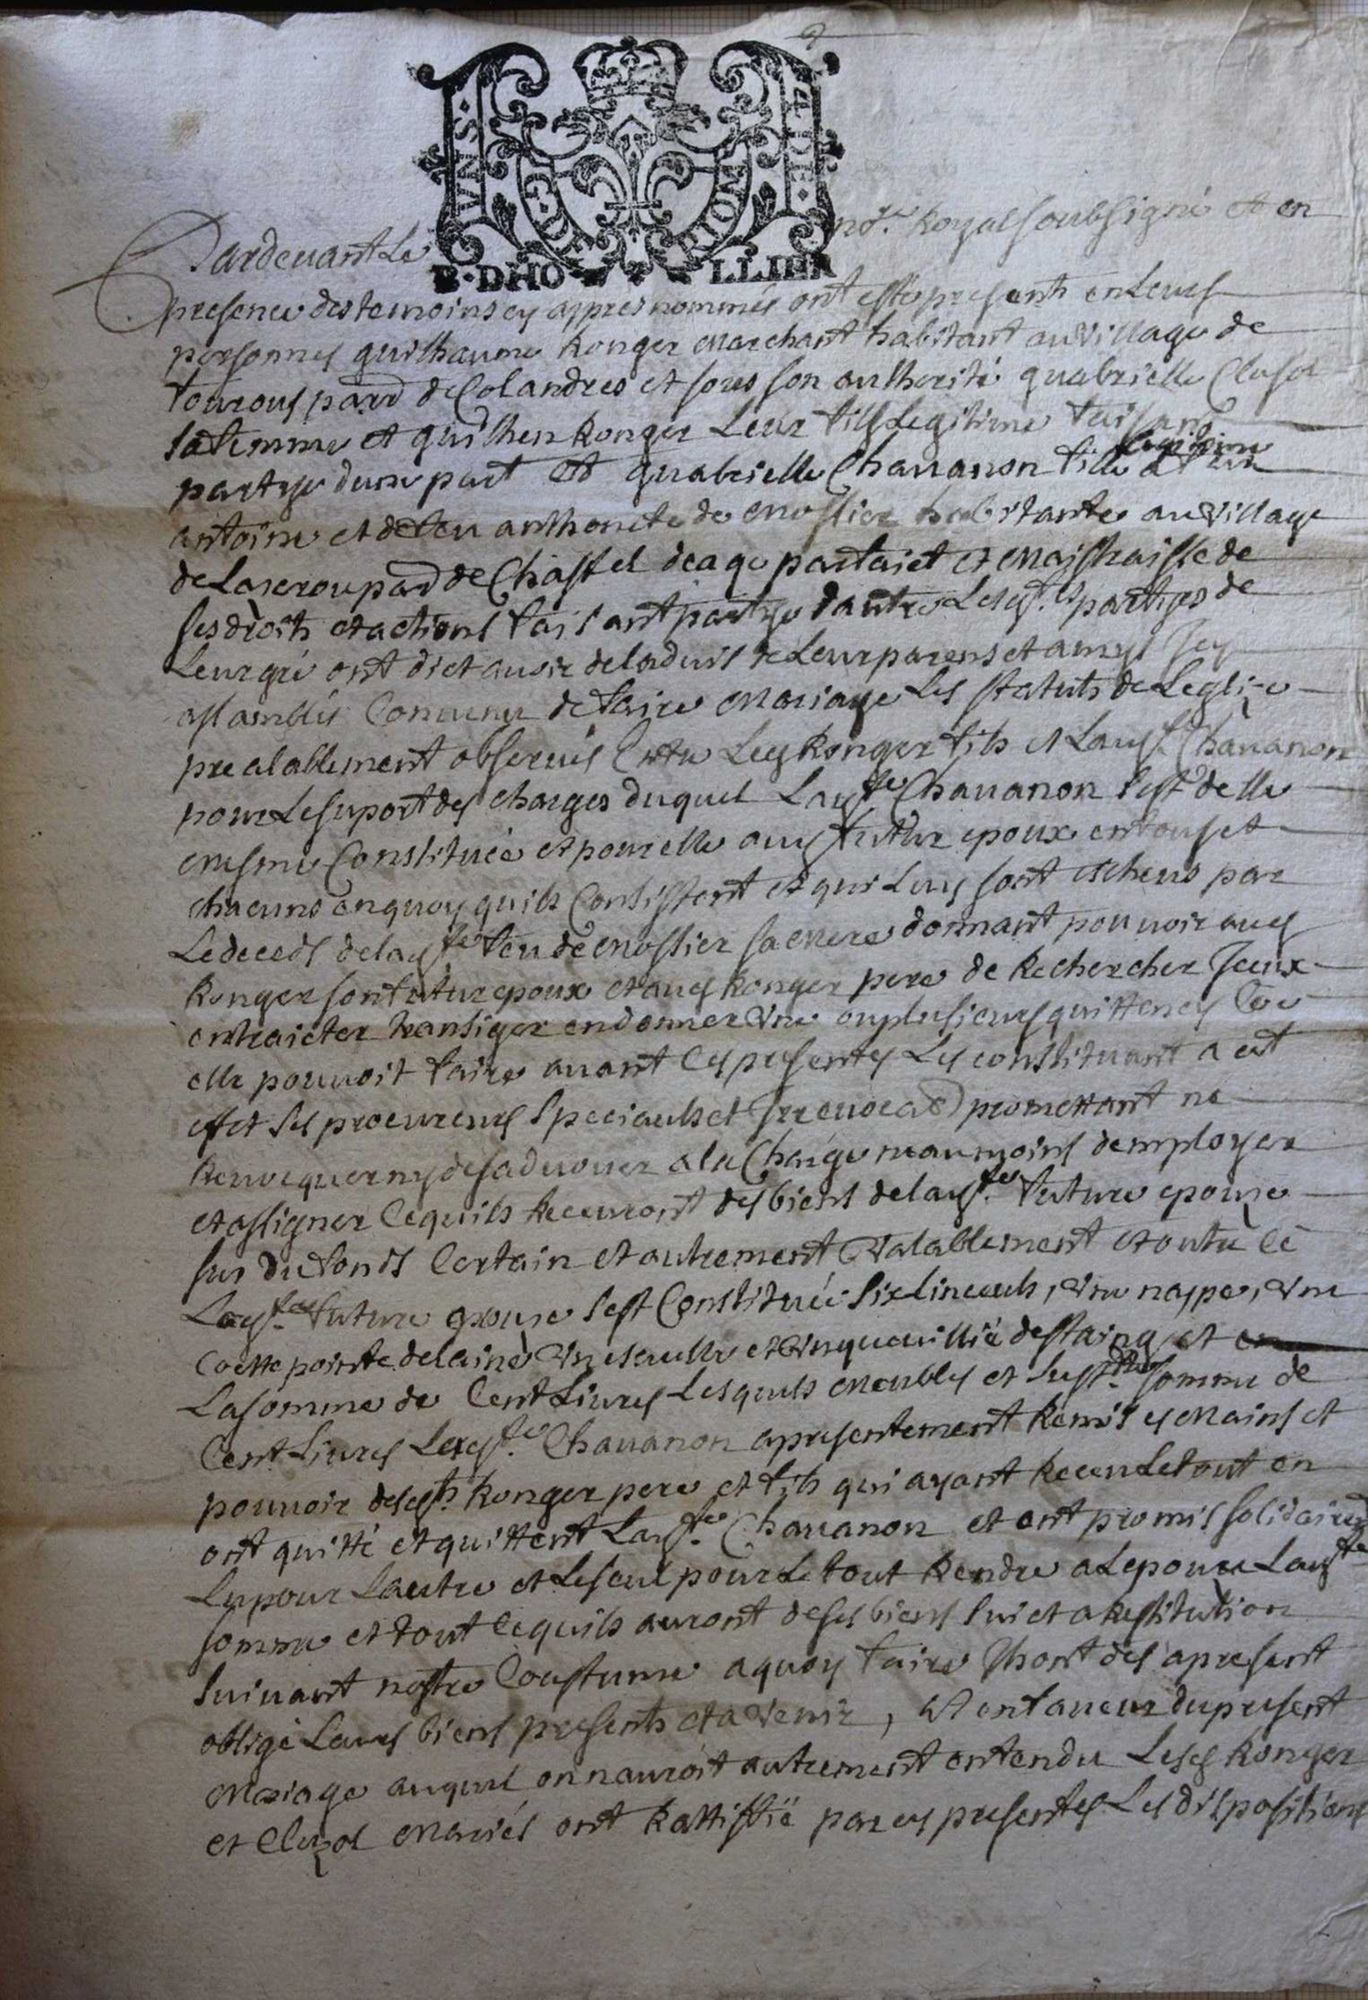 VNS. A.DE.
G.DE RIOM
B.DHO LLIER
Pardevant Le no.re Royal soubsigné et en
presence des temoins cy appres nommés ont esté presents en Leurs
personnes guilhaume Ronger marchant habitant au village de
tourous parr de Colandres et sous son authorité quabrielle Clusol
sa femme et guilhen Ronger Leur fils Legitime faisant
partye dune part et quabrielle Chauanon fille legitime a
antoine et de feu anthoneto de mostier habitante au village
de Lascrou parr de Chastel deage parfaict et maistraisse de
ses droits et actions faisant partye dautre Lesq.ls partyes de
Leur gré ont dict auoir de laduis de Leur parens et amys Icy
assamblés Conuenu de faire mariage Les statuts de Leglize
prealablement obserués Entre Led Ronger fils et Lad.te Chauanon
pour Le suport des charges duquel Lad.te Chauanon sest delle
mesme Constituée et pour elle aud futur epoux en tous et
chacuns en quoy quils Consistent et qui Luy sont escheus par
Le deceds de lad.te feu de mostier sa mere donnant pouuoir aud
Ronger son futur epoux et aud Ronger pere de Rechercher Iceux
en traicter transiger en donner vne ou plusieurs quittences Coe
elle pouuoit faire auant ces presentes Les constituant a cet
effet ses procureurs speciauls et Irreuocab promettant ne
Reuocquer ny desaduouer a la Charge neaumoins demployer
et assigner Ce quils Receuront des biens de lad.te future epouze
sur du fonds Certain et autrement valablement et outre Ce
Lad.te future epouse sest Constituée six linceuls, vne nappe, vne
Coette pointe de laine vne escuelle et vn queuillié destaing et
La somme de Cent Liures Lesquels meubles et susd.te somme de
Cent Liures Lad.te Chauanon a presentement Remis es mains et
pouuoir desd.ts Ronger pere et fils qui ayant Receu Le tout en
ont quitté et quittent Lad.te Chauanon et ont promis solidairem.t
Lu pour Lautre et Le seul pour Le tout Rendre a Lepouse Lad.te
somme et tout Ce quils auront de ses biens suiet a Restitution
suiuant nostre Coustume a quoy faire Ihont des apresent
obligé Leurs biens presents et a venir, et en faueur du present
mariage auquel on nauroit autrement entendu Lesd Ronger
et Cluzol mariés ont Rattiffié par ces presentes Les dispositions